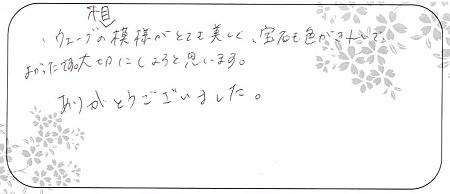 、ウェーブの模様がとても美しく、宝石も色がきれいで、
よかったです。大切にしようと思います。
ありがとうございました。